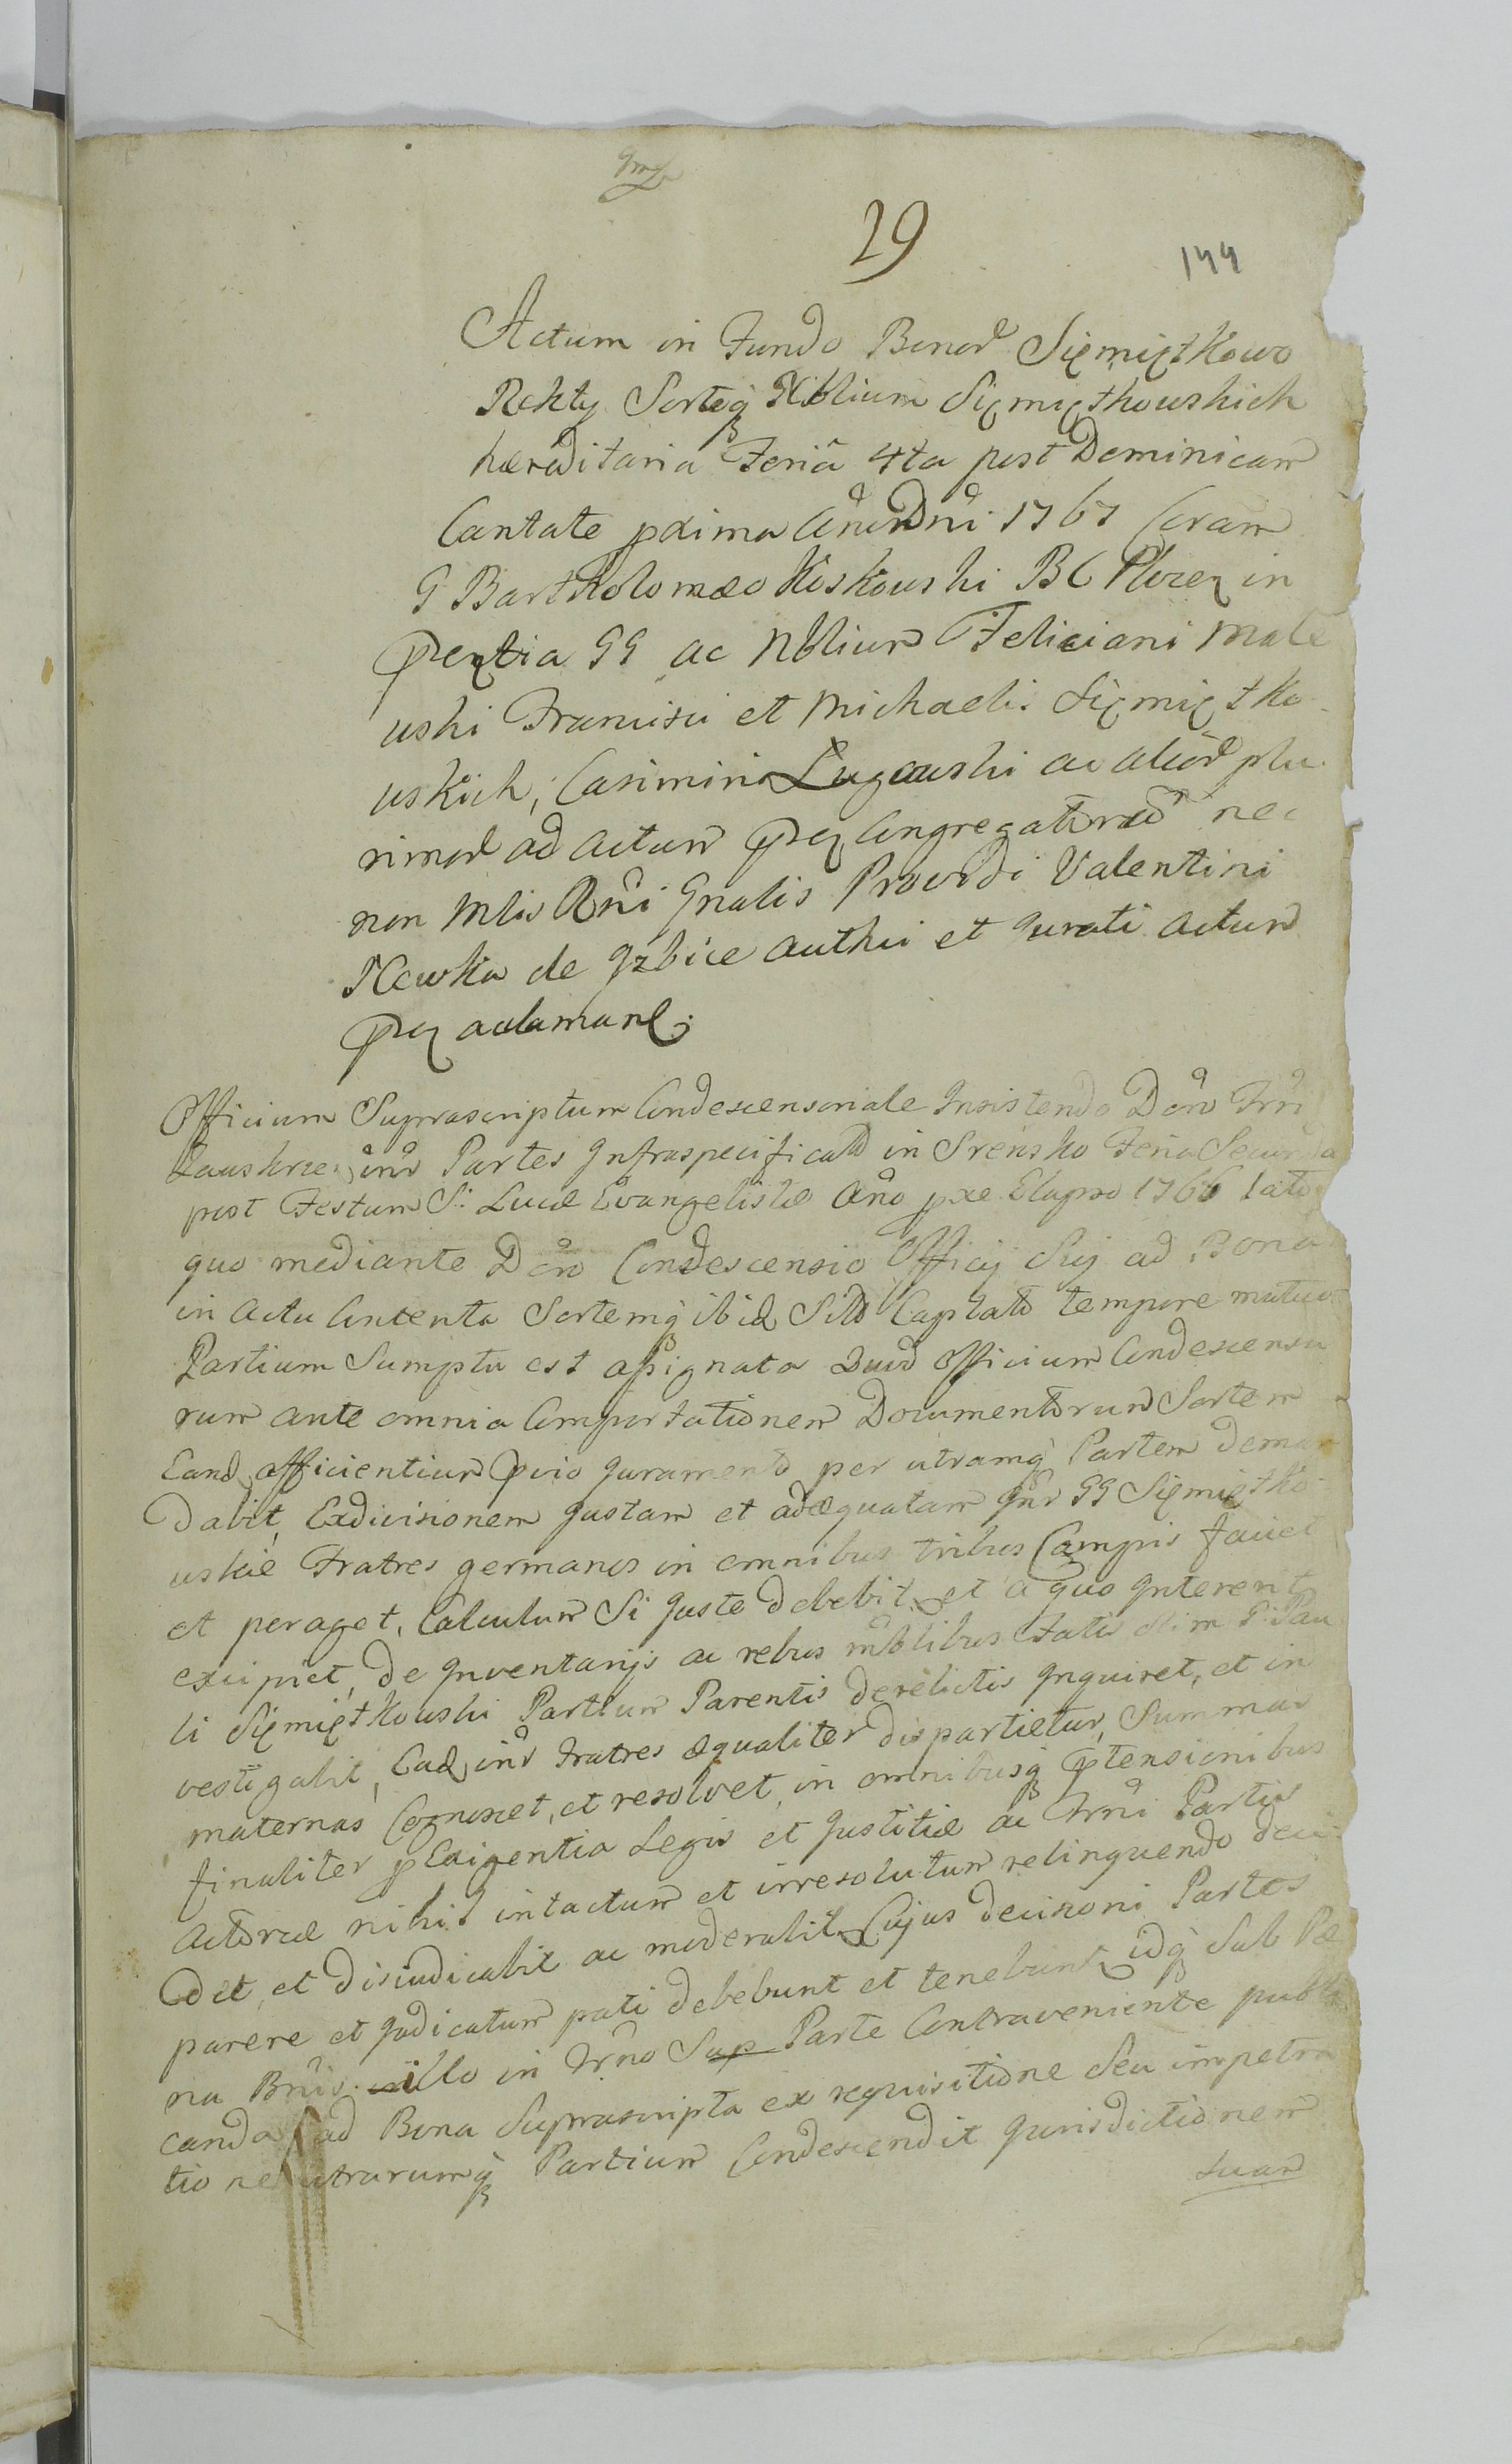 29
144
Actum in Fundo Bonor Siemiętkowo
Rekty Sorteq Nblium Siemiętkowskich
hæreditaria Feria 4ta post Dominicam
Cantate pxima Anno Dni 1767 Coram
G Bartholomæo Koskowski BC Plocen in
pntia GG ac Nblium Feliciani Male
wski Francisci et Michaelis Siemiętko
wskich, Casimiri Lugowski ac alior plu
rimor ad actum pn Congregatorum nec
non Mlis Rni Gnalis Providi Valentini
Newka de Izbice authci et Jurati actum
pn acclamane.
Officium Suprascriptum Condescensoriale Insistendo Dcro Trri
Zawskrzen inr Partes Infraspecificatas in Srensko Feria Secunda
post Festum S. Lucæ Evangelistæ Anno pxe Elapso 1766 lato
quo mediante Dcro Condescensio Officij Sui ad Bona
in actu Contenta Sortemq ibid Sitas Captato tempore mutuo
Partium Sumptu est assignata Quod officium Condescensu
rum ante omnia Comportationem Documentorum Sortem
Eand afficientium pvio Juramento per utramq Partem deman
dabit, Exdivisionem Justam et adæquatam Inr GG Siemiętko
wskie Fratres germanos in omnibus tribus Campis faciet
et peraget, Calculum Si Juste debebit et a quo Intererit
excipiet, de Inventarijs ac rebus mblibus Fatis olim G. Pau
li Siemiętkowski Partium Parentis derelictis Inquiret, et in
vestigabit, Ead inr Fratres æqualiter dispartietur, Summas
maternas Cognoscet, et resolvet, in omnibusq ptensionibus
finaliter p Exigentia Legis et Justitiæ ac Trmi Partis
Actoreæ nihil intactum et irresolutum relinquendo deci
det, et disiudicabit ac moderabit Cujus decisioni Partes
parere et Judicatum pati debebunt et tenebunt idq Sub Pæ
na Bnis illo in Trmo Sup Parte Contraveniente publi
canda ad Bona Suprascripta ex requisitione Seu impetra
tione utrarumq Partium Condescendit Jurisdictionem
suam